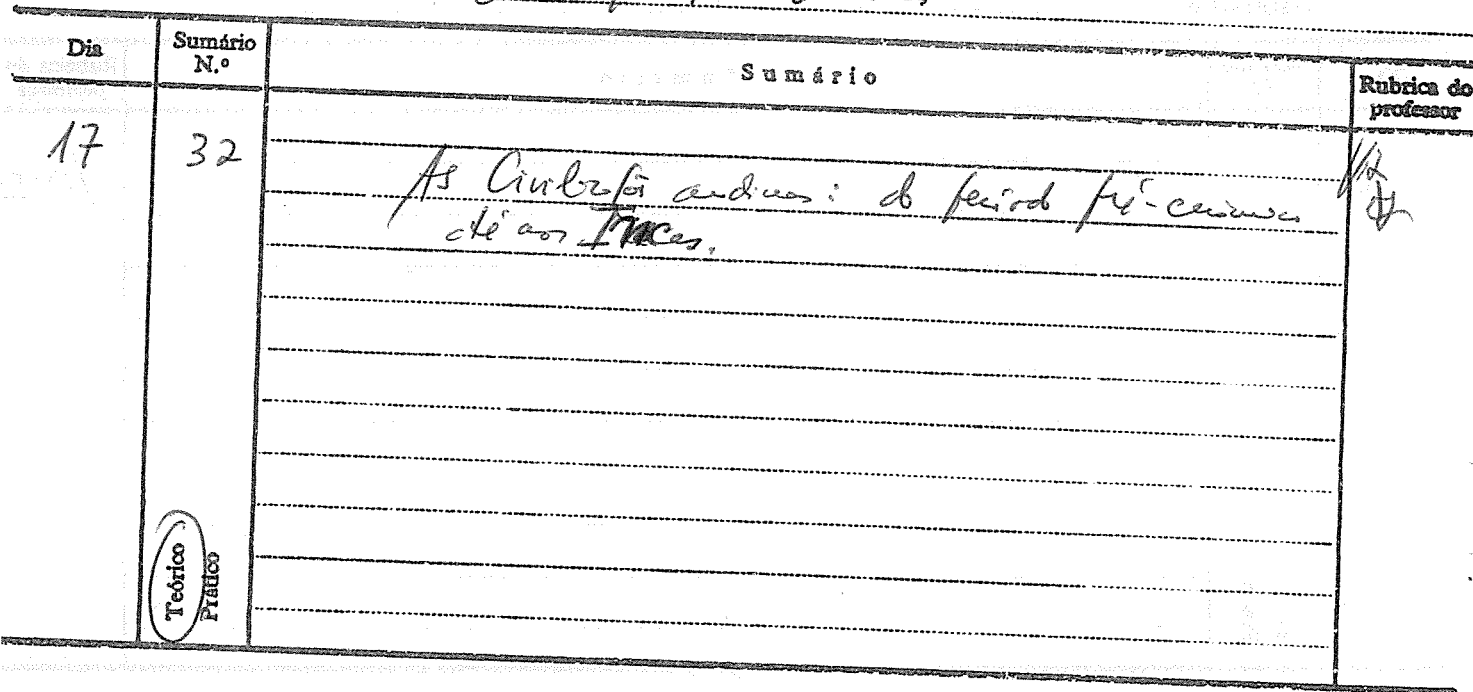 Dia
Sumário N.º
Sumário
Rubrica do professor
17
32
As Civilizações andinas: do período pré-cerâmico
até aos Incas.
Teórico
Prático